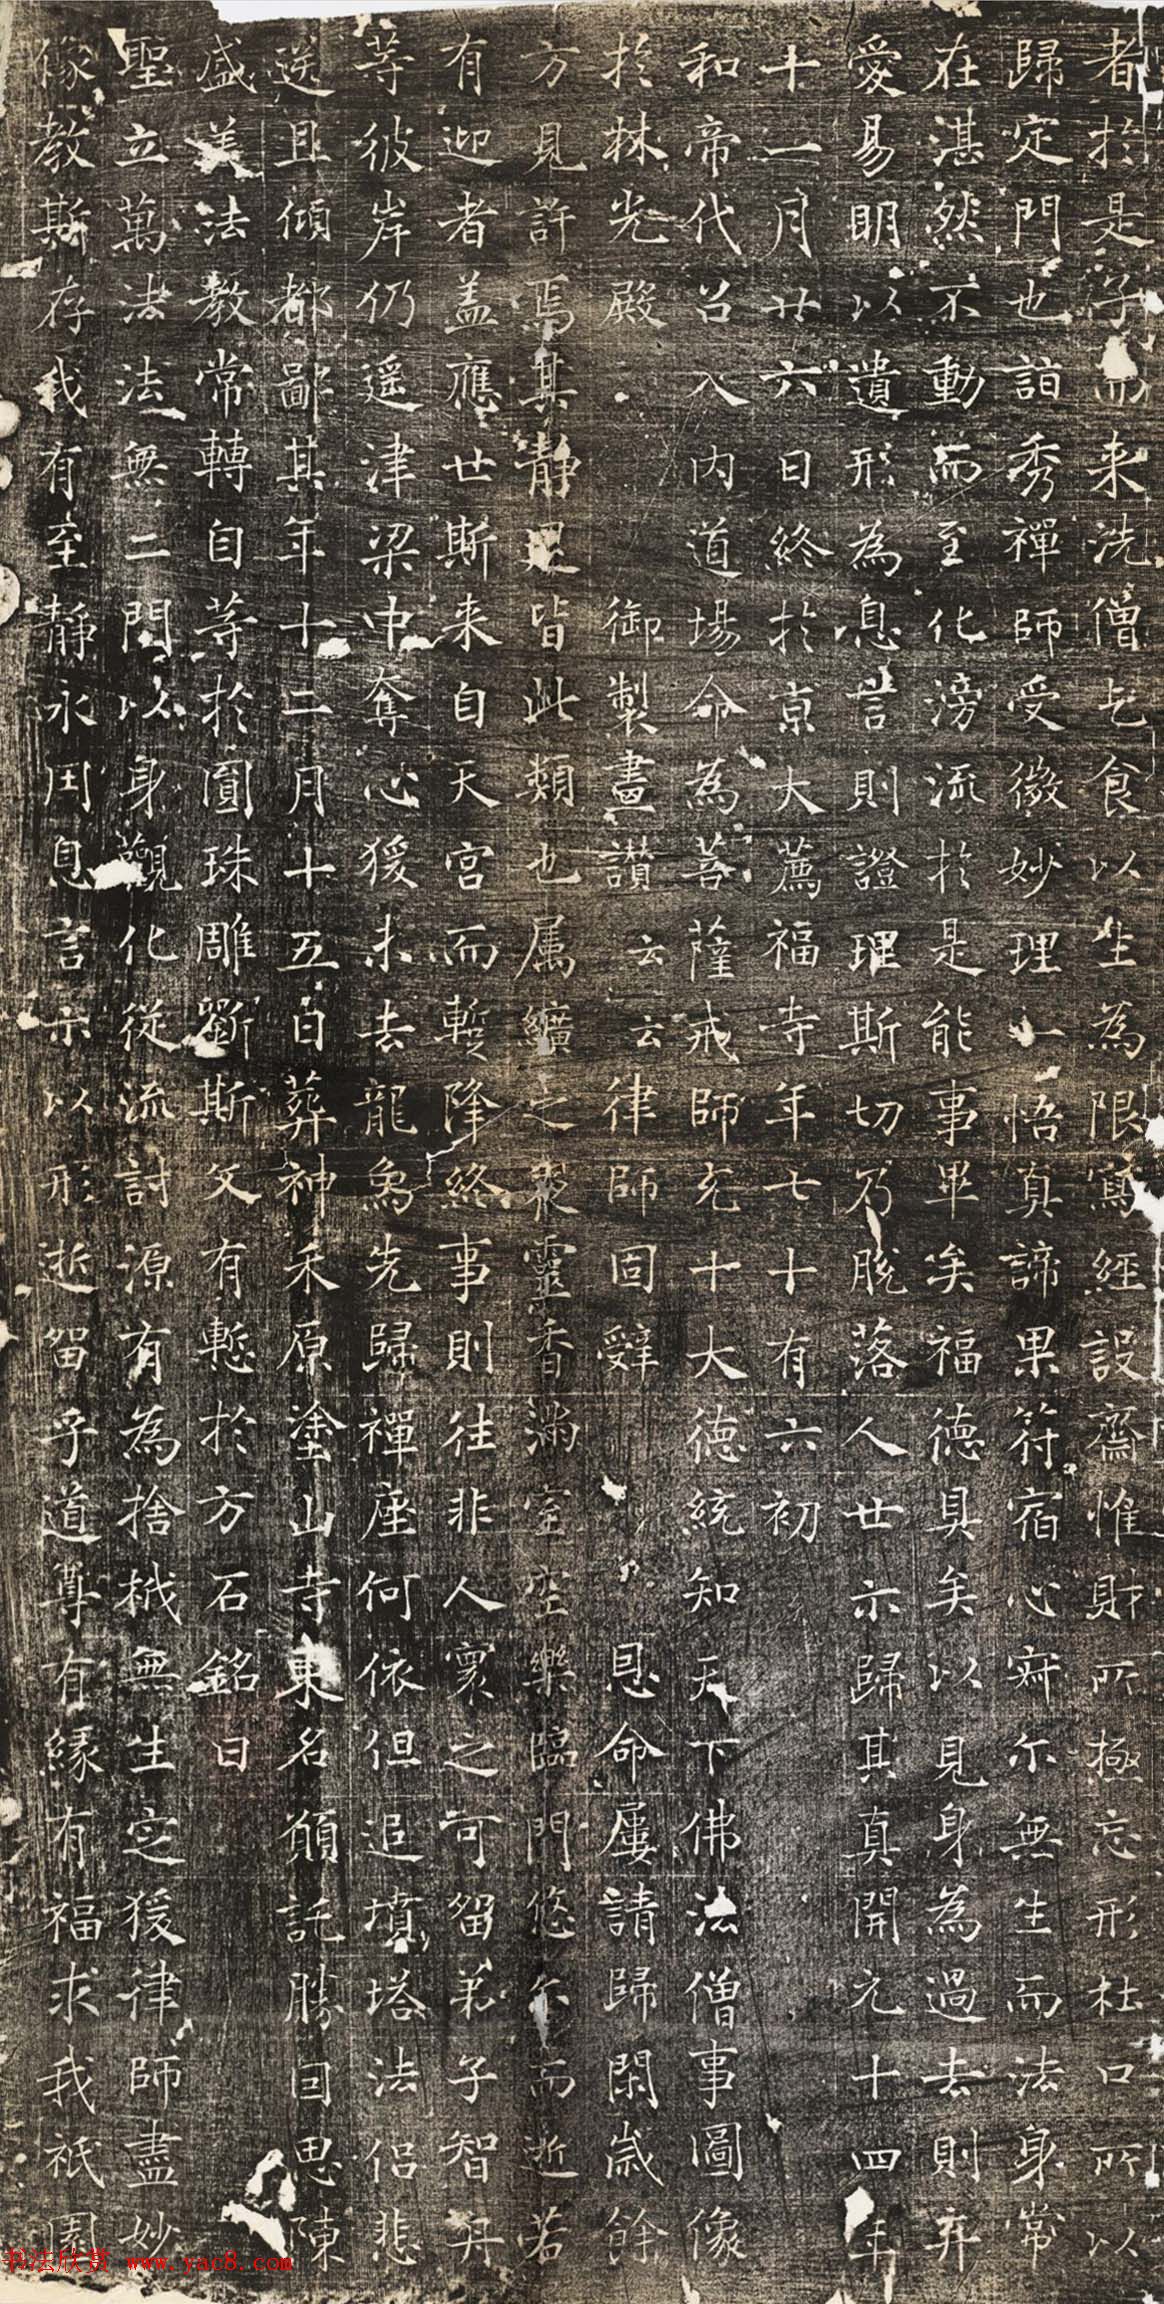 者於是乎而来洗僧乞食以坐為限寫經設齋惟財所極忘形杜口所以
歸定門也詣秀禪師受微妙理一悟真諦果符宿心寂尒無生而法身常
在湛然不動而至化滂流於是能事畢矣福德具矣以見身為過去則弃
愛易明以遺形為息言則證理斯切乃脫落人世示歸其真開元十四年
十一月廿六日終於京大薦福寺年七十有六初
和帝代召入內道場命為菩薩戒師充十大德統知天下佛法僧事圖像
於林光殿 御製畫讃云云律師固辤 恩命屢請歸閑歲餘
方見許焉其靜退皆此類也属纊之夜靈香滿室空樂臨門悠尒而逝若
有迎者盖應世斯来自天宮而暫降終事則往非人寰之可留弟子智平
等彼岸仍遥津梁中奪心猨未去龍象先歸禪座何依但追墳塔法侶悲
送且傾都鄙其年十二月十五日葬神禾原塗山寺東名願託勝因思陳
盛美法教常轉自等於圓珠雕斵斯文有慙於方石銘曰
聖立萬法法無二門以身觀化從流討源有為捨栰無生定猨律師盡妙
像教斯存我有至靜永用息言示以形逝留乎道尊有緣有福求我祇園
书法欣赏 www.yac8.com